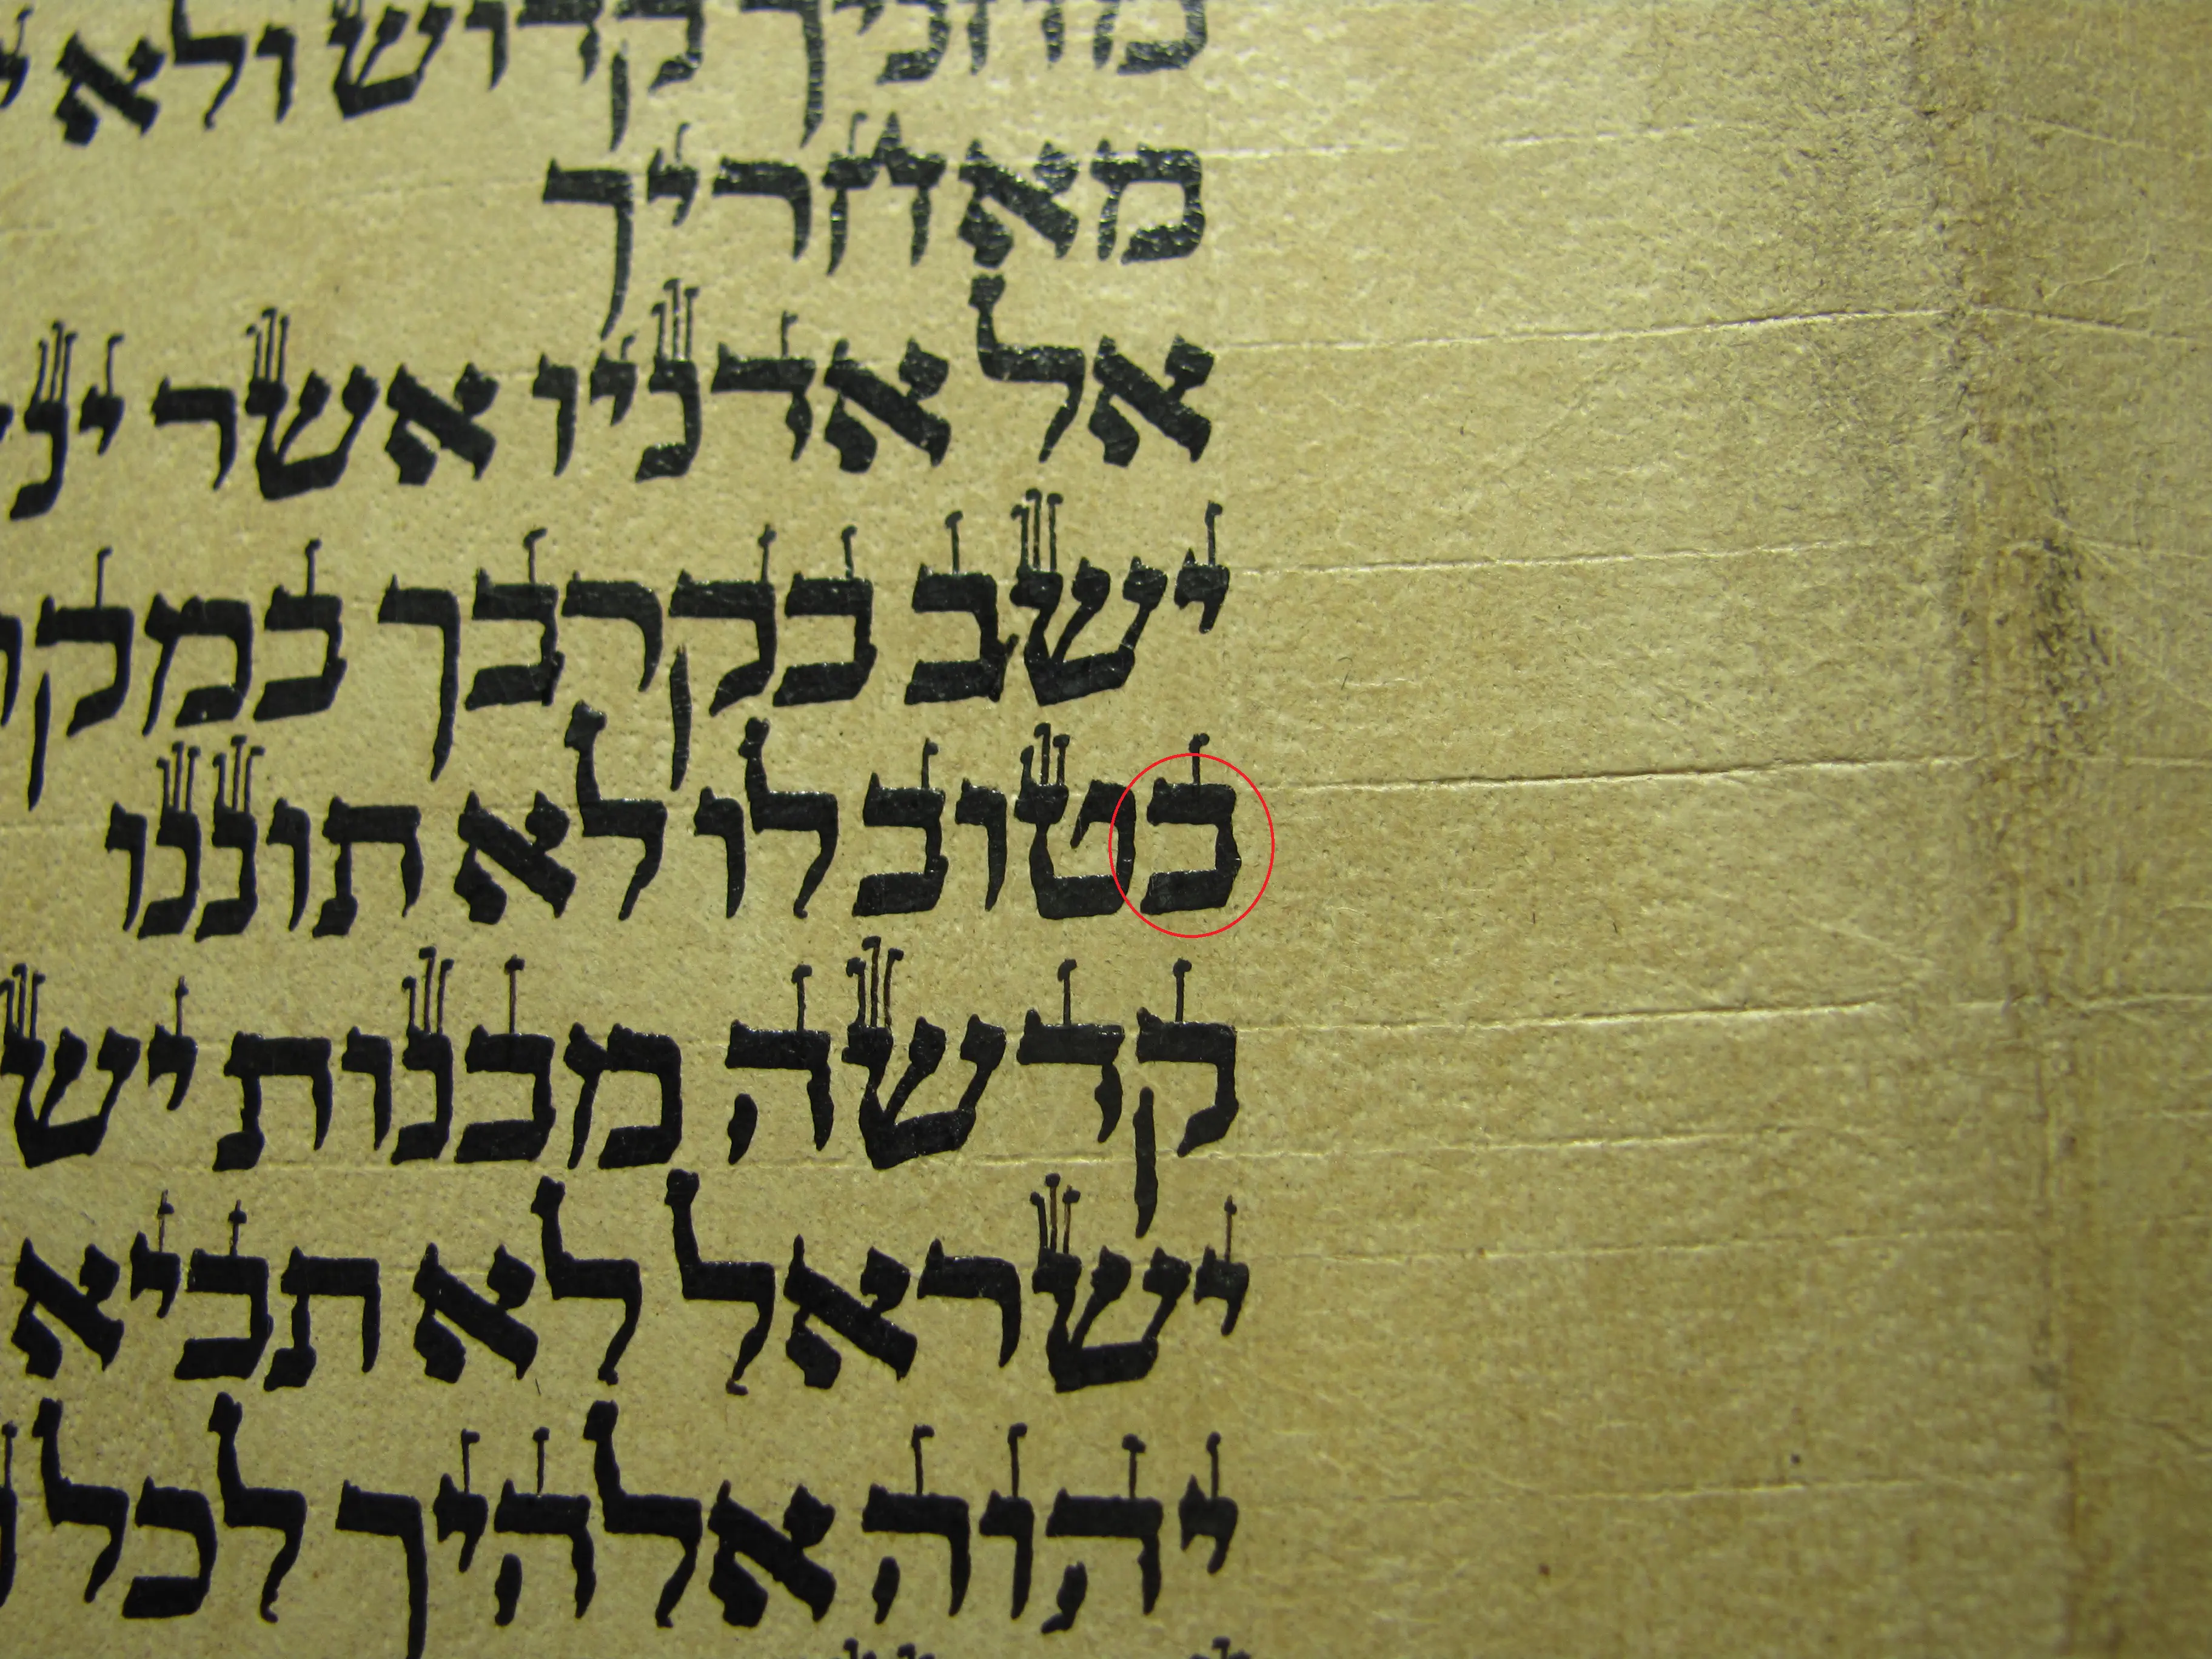 מחניך קדוש ולא
מאחריך
אל אדניו אשר
ישב בקרבך
בטוב לו לא תוננו
קדשה מבנות
ישראל לא תביא
יהוה אלהיך לכל